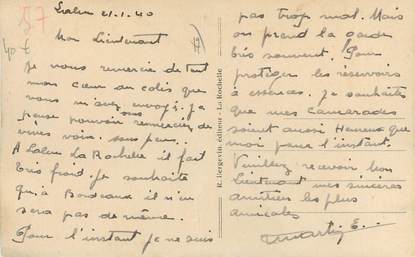 57
Laleu 21.1.40
40 €
Mon Lieutenant
Je vous remercie de tout
mon cœur du colis que
vous m'avez envoyé. Je
pense pouvoir vous remercier de
vives voix. sous peu.
A Laleu La Rochelle il fait
très froid. Je souhaite
qu'à Bordeaux il n'en
sera pas de même.
Pour l'instant je ne suis
R. Bergevin éditeur - La Rochelle
pas trop mal. Mais
on prend la garde
très souvent. Pour
protéger les réservoirs
à essences. Je souhaite
que mes camarades
soient aussi Heureux que
moi pour l'instant.
Veuillez recevoir Mon
Lieutenant mes sincères
amitiées les plus
amicales
Martin E.